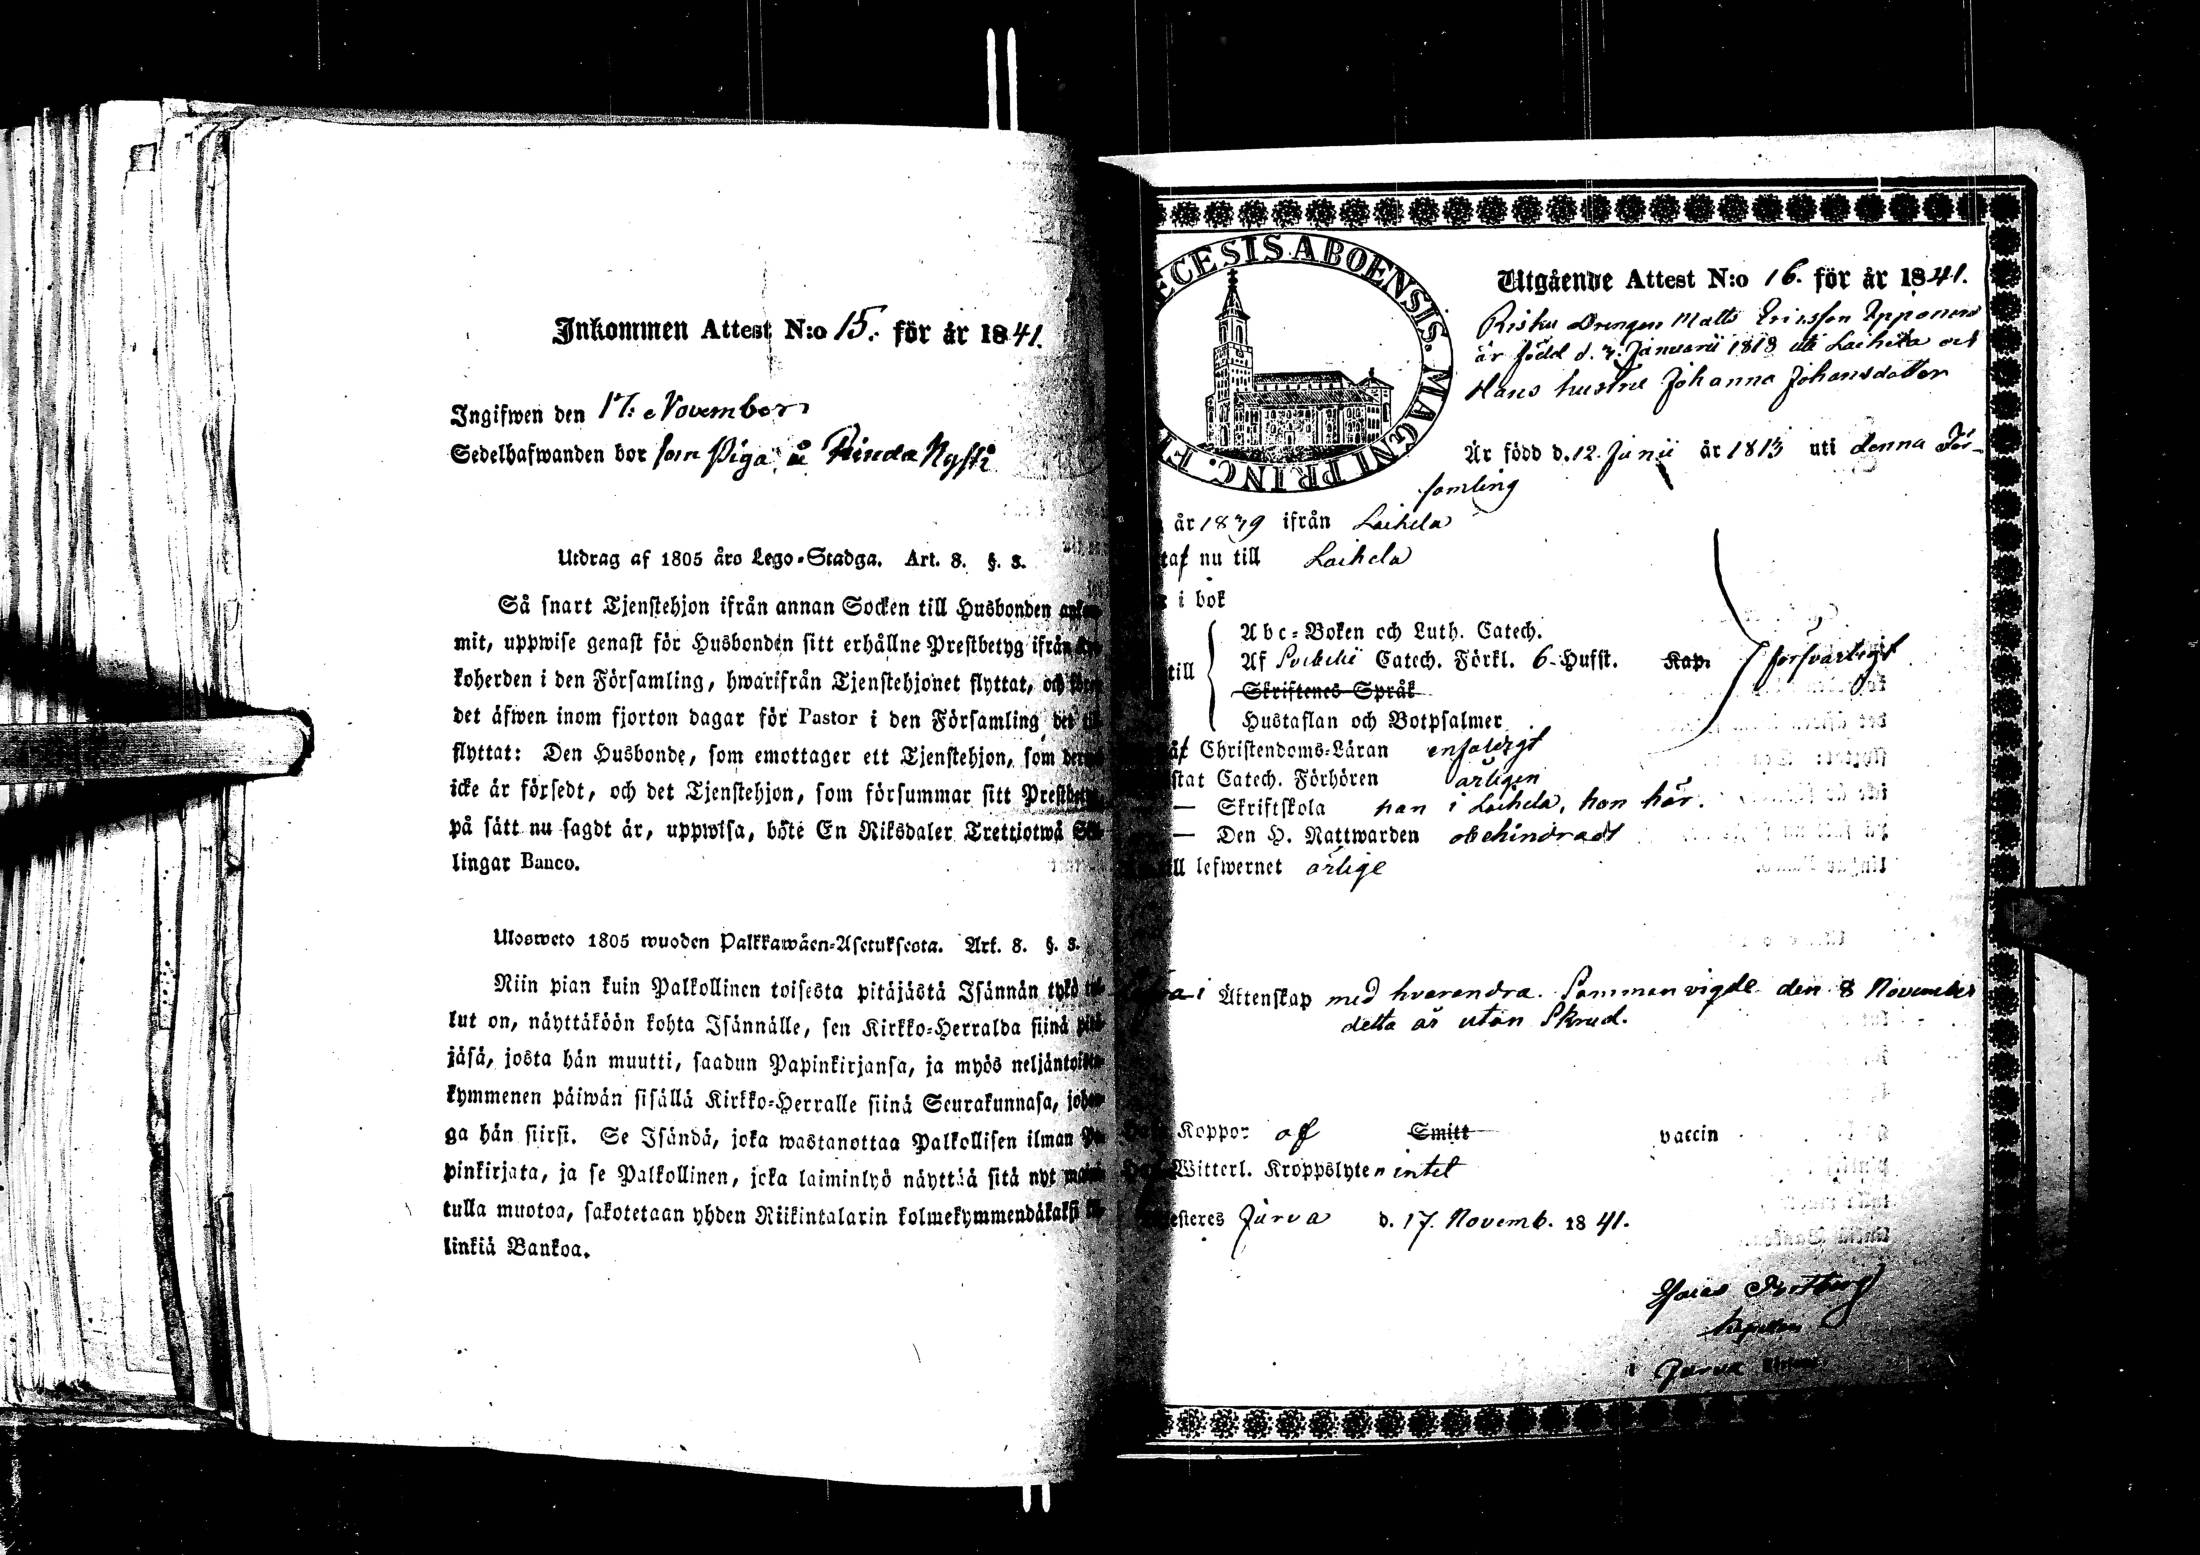 Inkommen Attest N:o 15. för år 1841.
Ingifwen den 17. November
Sedelhafwanden bor som Piga å
Utdrag af 1805 års Lego-Stadga. Art. 8. §. 3.
Så snart Tjenstehjon ifrån annan Socken till Husbonden
mit, uppwise genast för Husbonden sitt erhållne Prestbetyg ifrån
koherden i den Församling, hwarifrån Tjenstehjonet flyttat, och
det äfwen inom fjorton dagar för Pastor i den Församling det
flyttat: Den Husbonde, som emottager ett Tjenstehjon, som
icke är försedt, och det Tjenstehjon, som försummar sitt
på sätt nu sagdt är, uppwisa, böte En Riksdaler Trettiotwå
lingar Banco.
Ulosweto 1805 wuoden Palkkawäen-Asetuksesta. Art. 8. §. 3.
Niin pian kuin Palkollinen toisesta pitäjästä Isännän tykö
lut on, näyttäköön kohta Isännälle, sen Kirkko-Herralda siinä
jäsä, josta hän muutti, saadun Papinkirjansa, ja myös
kymmenen päiwän sisällä Kirkko-Herralle siinä Seurakunnasa,
ga hän siirsi. Se Isändä, joka wastanottaa Palkollisen ilman
pinkirjata, ja se Palkollinen, joka laiminlyö näyttää sitä nyt
tulla muotoa, sakotetaan yhden Riikintalarin kolmekymmendäkaksi
linkiä Bankoa.
ECESIS ABOENSIS. MAGNI PRINC. F
Utgående Attest N:o 16. för år 1841.
Drengen Matts Ericsson
är född d. Januarii 1818 uti Laihela och
Hans hustru Johanna Johansdotter
Är född d. 12 Junii år 1813 uti denna För-
samling
år 1839 ifrån Laihela
taf nu till Laihela
i bok
Abc-Boken och Luth. Catech.
Af Catech. Förkl. 6 Hufst. Kap. försvarligt
till
Skriftenes Språk
Hustaflan och Botpsalmer
af Christendoms-Läran enfaldigt
stat Catech. Förhören årligen
— Skriftskola han i Laihela, hon här.
— Den H. Nattwarden obehindradt
till lefwernet ärlige
i Äktenskap med hvarandra. Sammanvigde den 8 November
detta år utan Skrud.
Koppor af Smitt vaccin
Witterl. Kroppslyten intet
esteres Jurva d. 17. Novemb. 1841.
i Jurva